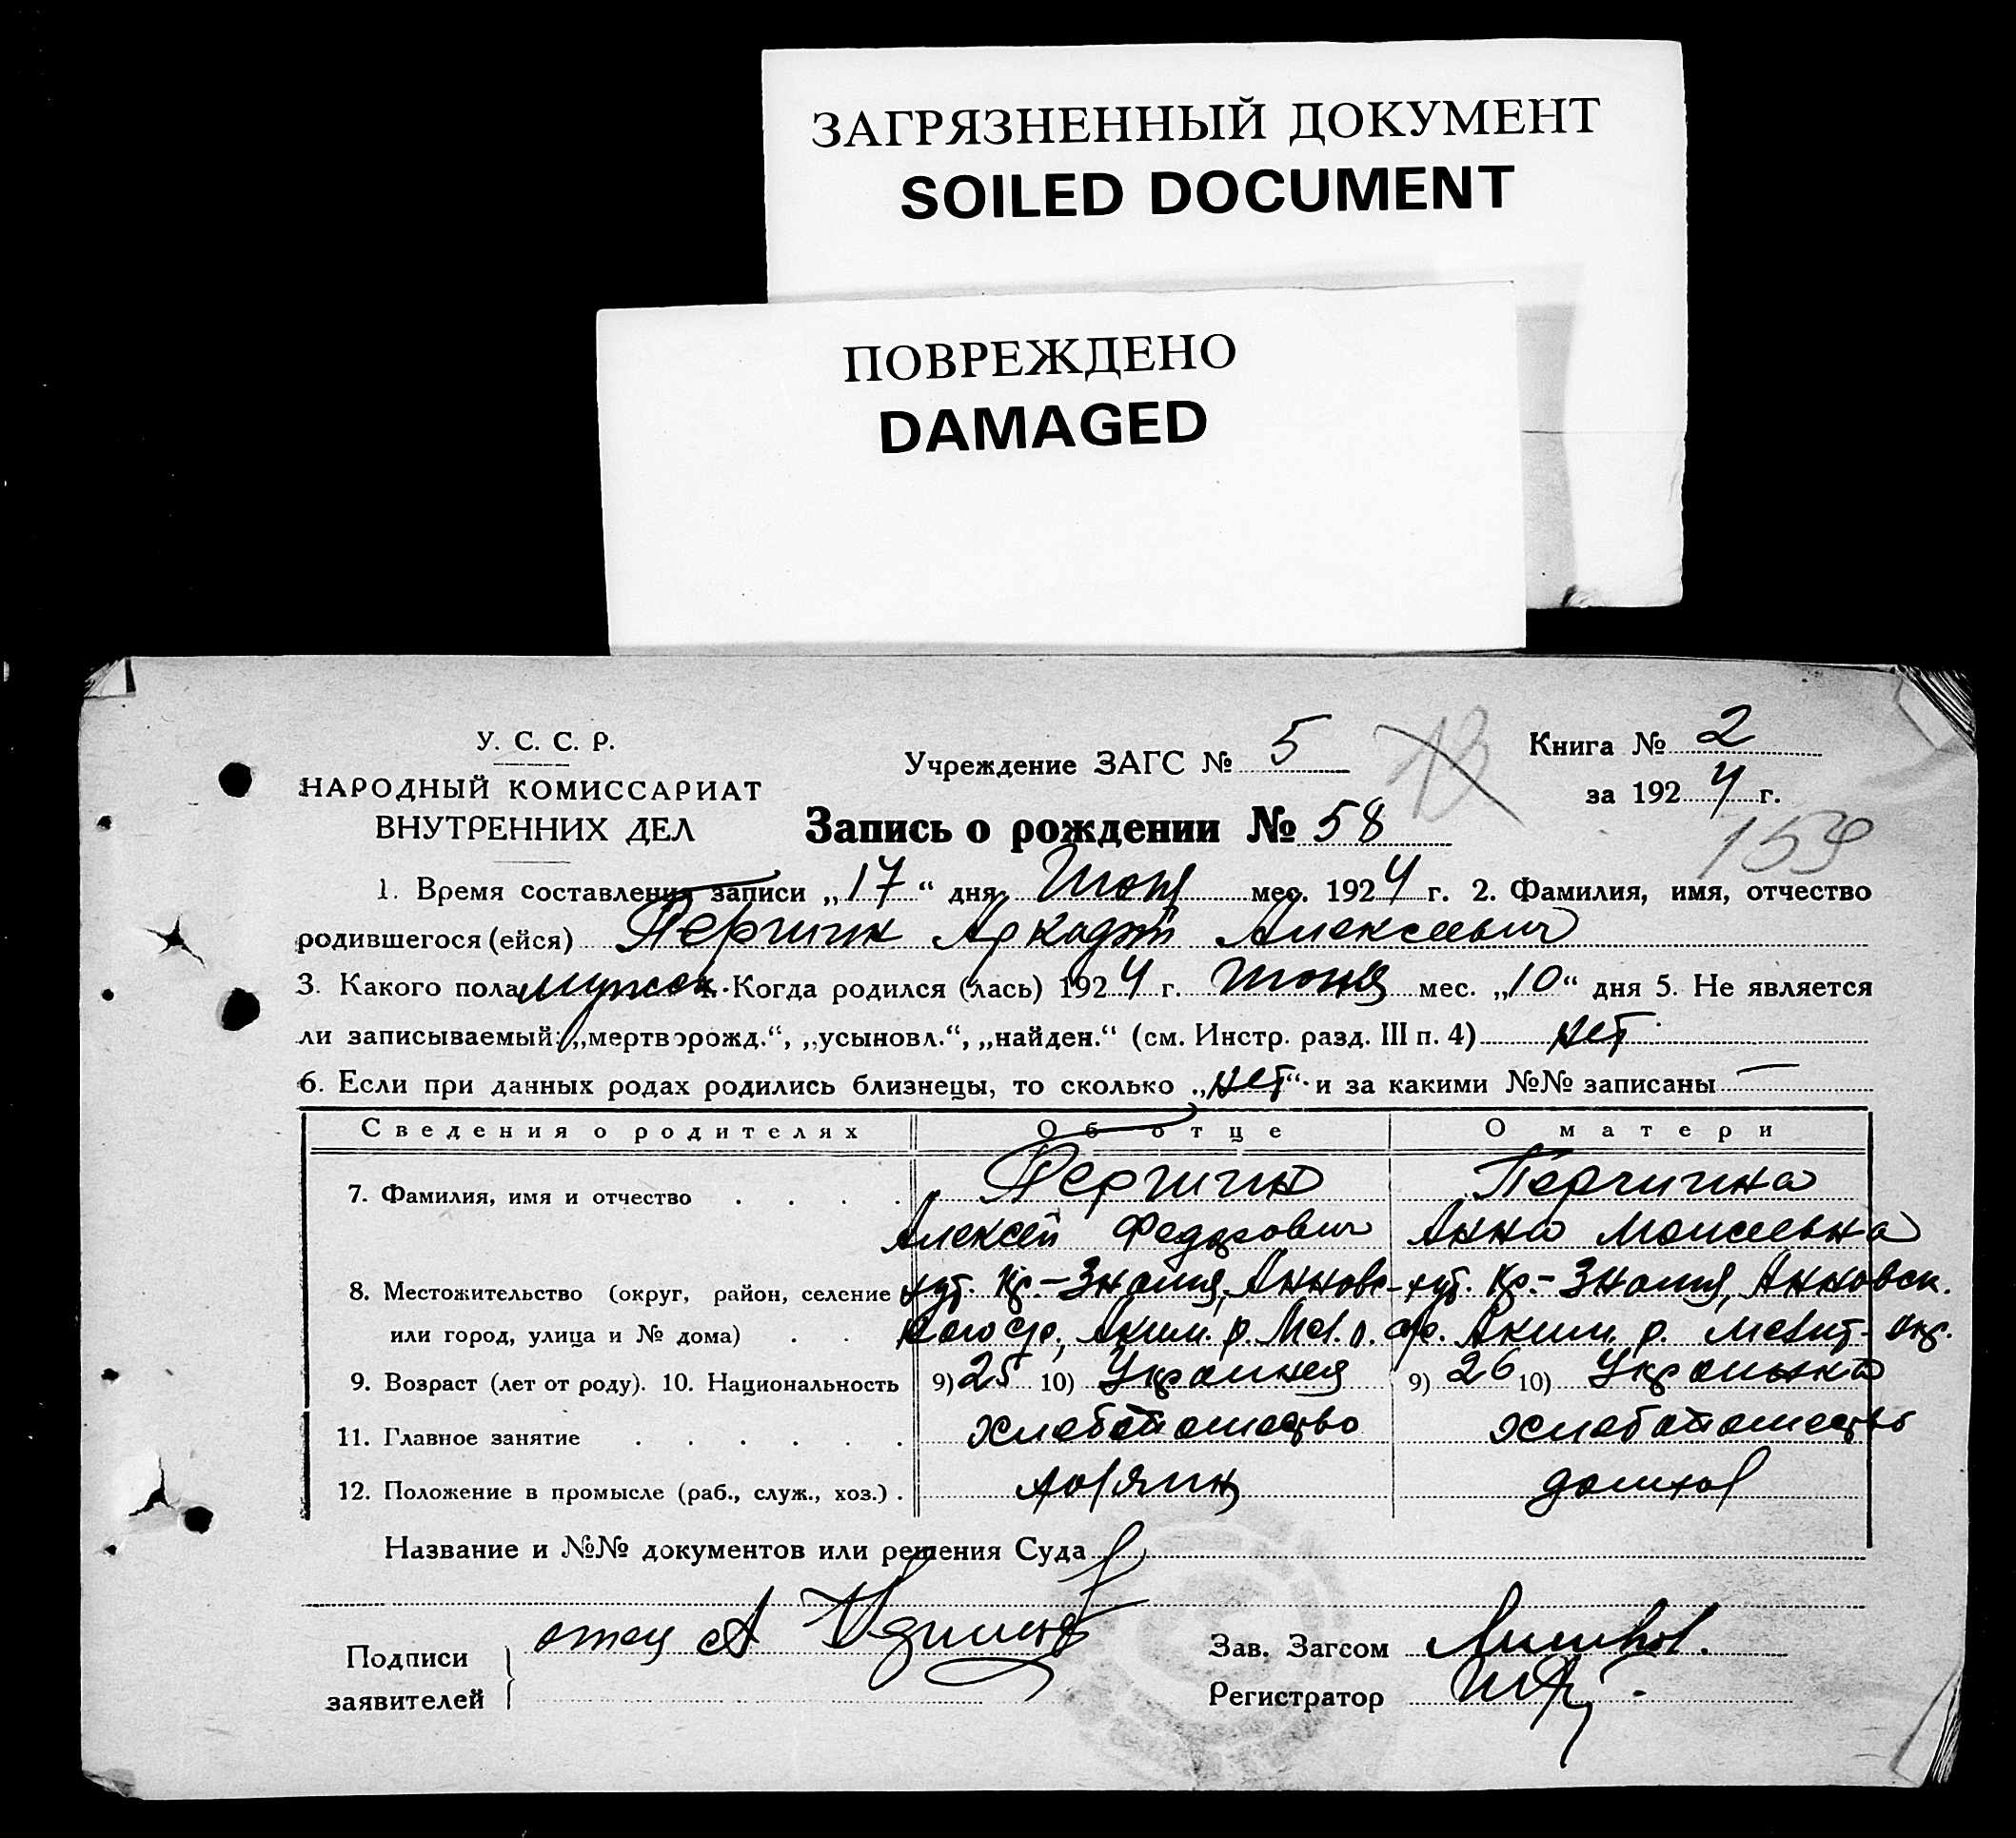 ЗАГРЯЗНЕННЫЙ ДОКУМЕНТ
SOILED DOCUMENT
ПОВРЕЖДЕНО
DAMAGED
У. С. С. Р.
НАРОДНЫЙ КОМИССАРИАТ
ВНУТРЕННИХ ДЕЛ
Учреждение ЗАГС № 5
Книга № 2
за 1924 г.
Запись о рождении № 58
159
1. Время составления записи „17“ дня Июня мес. 1924 г. 2. Фамилия, имя, отчество
родившегося (ейся) Аркадий Алексеевич
3. Какого пола мужск. 4. Когда родился (лась) 1924 г. Июня мес. „10“ дня 5. Не является
ли записываемый: „мертворожд.“, „усыновл.“, „найден.“ (см. Инстр. разд. III п. 4) нет
6. Если при данных родах родились близнецы, то сколько „нет“ и за какими №№ записаны —
Сведения о родителях Об отце О матери
7. Фамилия, имя и отчество
Алексей Федорович Анна Моисеевна
8. Местожительство (округ, район, селение хут. Кр-Знамя, Анновс- хут. Кр-Знамя, Анновск.
или город, улица и № дома) Аким. р. Аким. р. Мелит. окр.
9. Возраст (лет от роду). 10. Национальность 9) 25 10) Украинец 9) 26 10) Украинка
11. Главное занятие хлебопашество хлебопашество
12. Положение в промысле (раб., служ., хоз.). хозяин домхоз
Название и №№ документов или решения Суда
Подписи
заявителей
отец А
Зав. Загсом
Регистратор